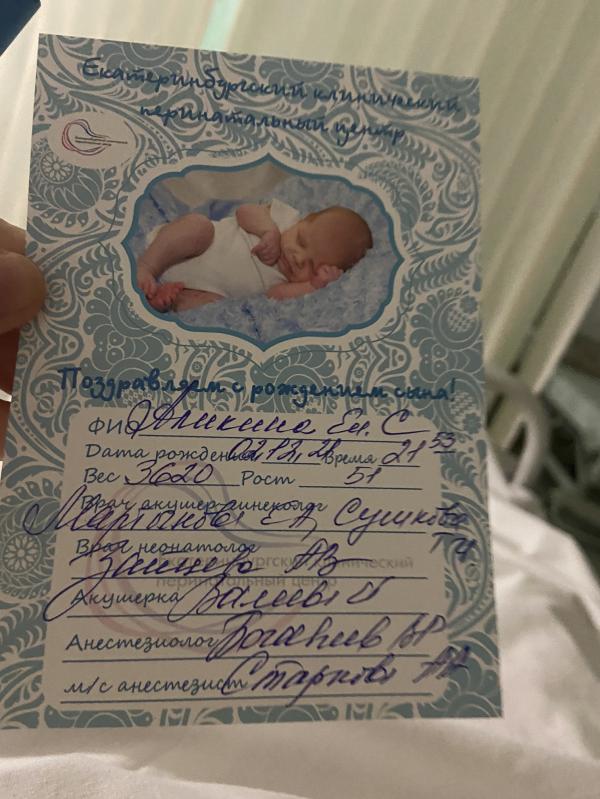 Екатеринбургский клинический
перинатальный центр
Поздравляем с рождением сына!
ФИО Аникина Ек. С
Дата рождения 02.12. Время 21 53
Вес 3620 Рост 51
Врач акушер-гинеколог
Мартынова Е А, Сушкова
ТЦ
Врач неонатолог
АВ
Екатеринбургский клинический
перинатальный центр
Акушерка
Анестезиолог ВР
м/с анестезист Старкова АА